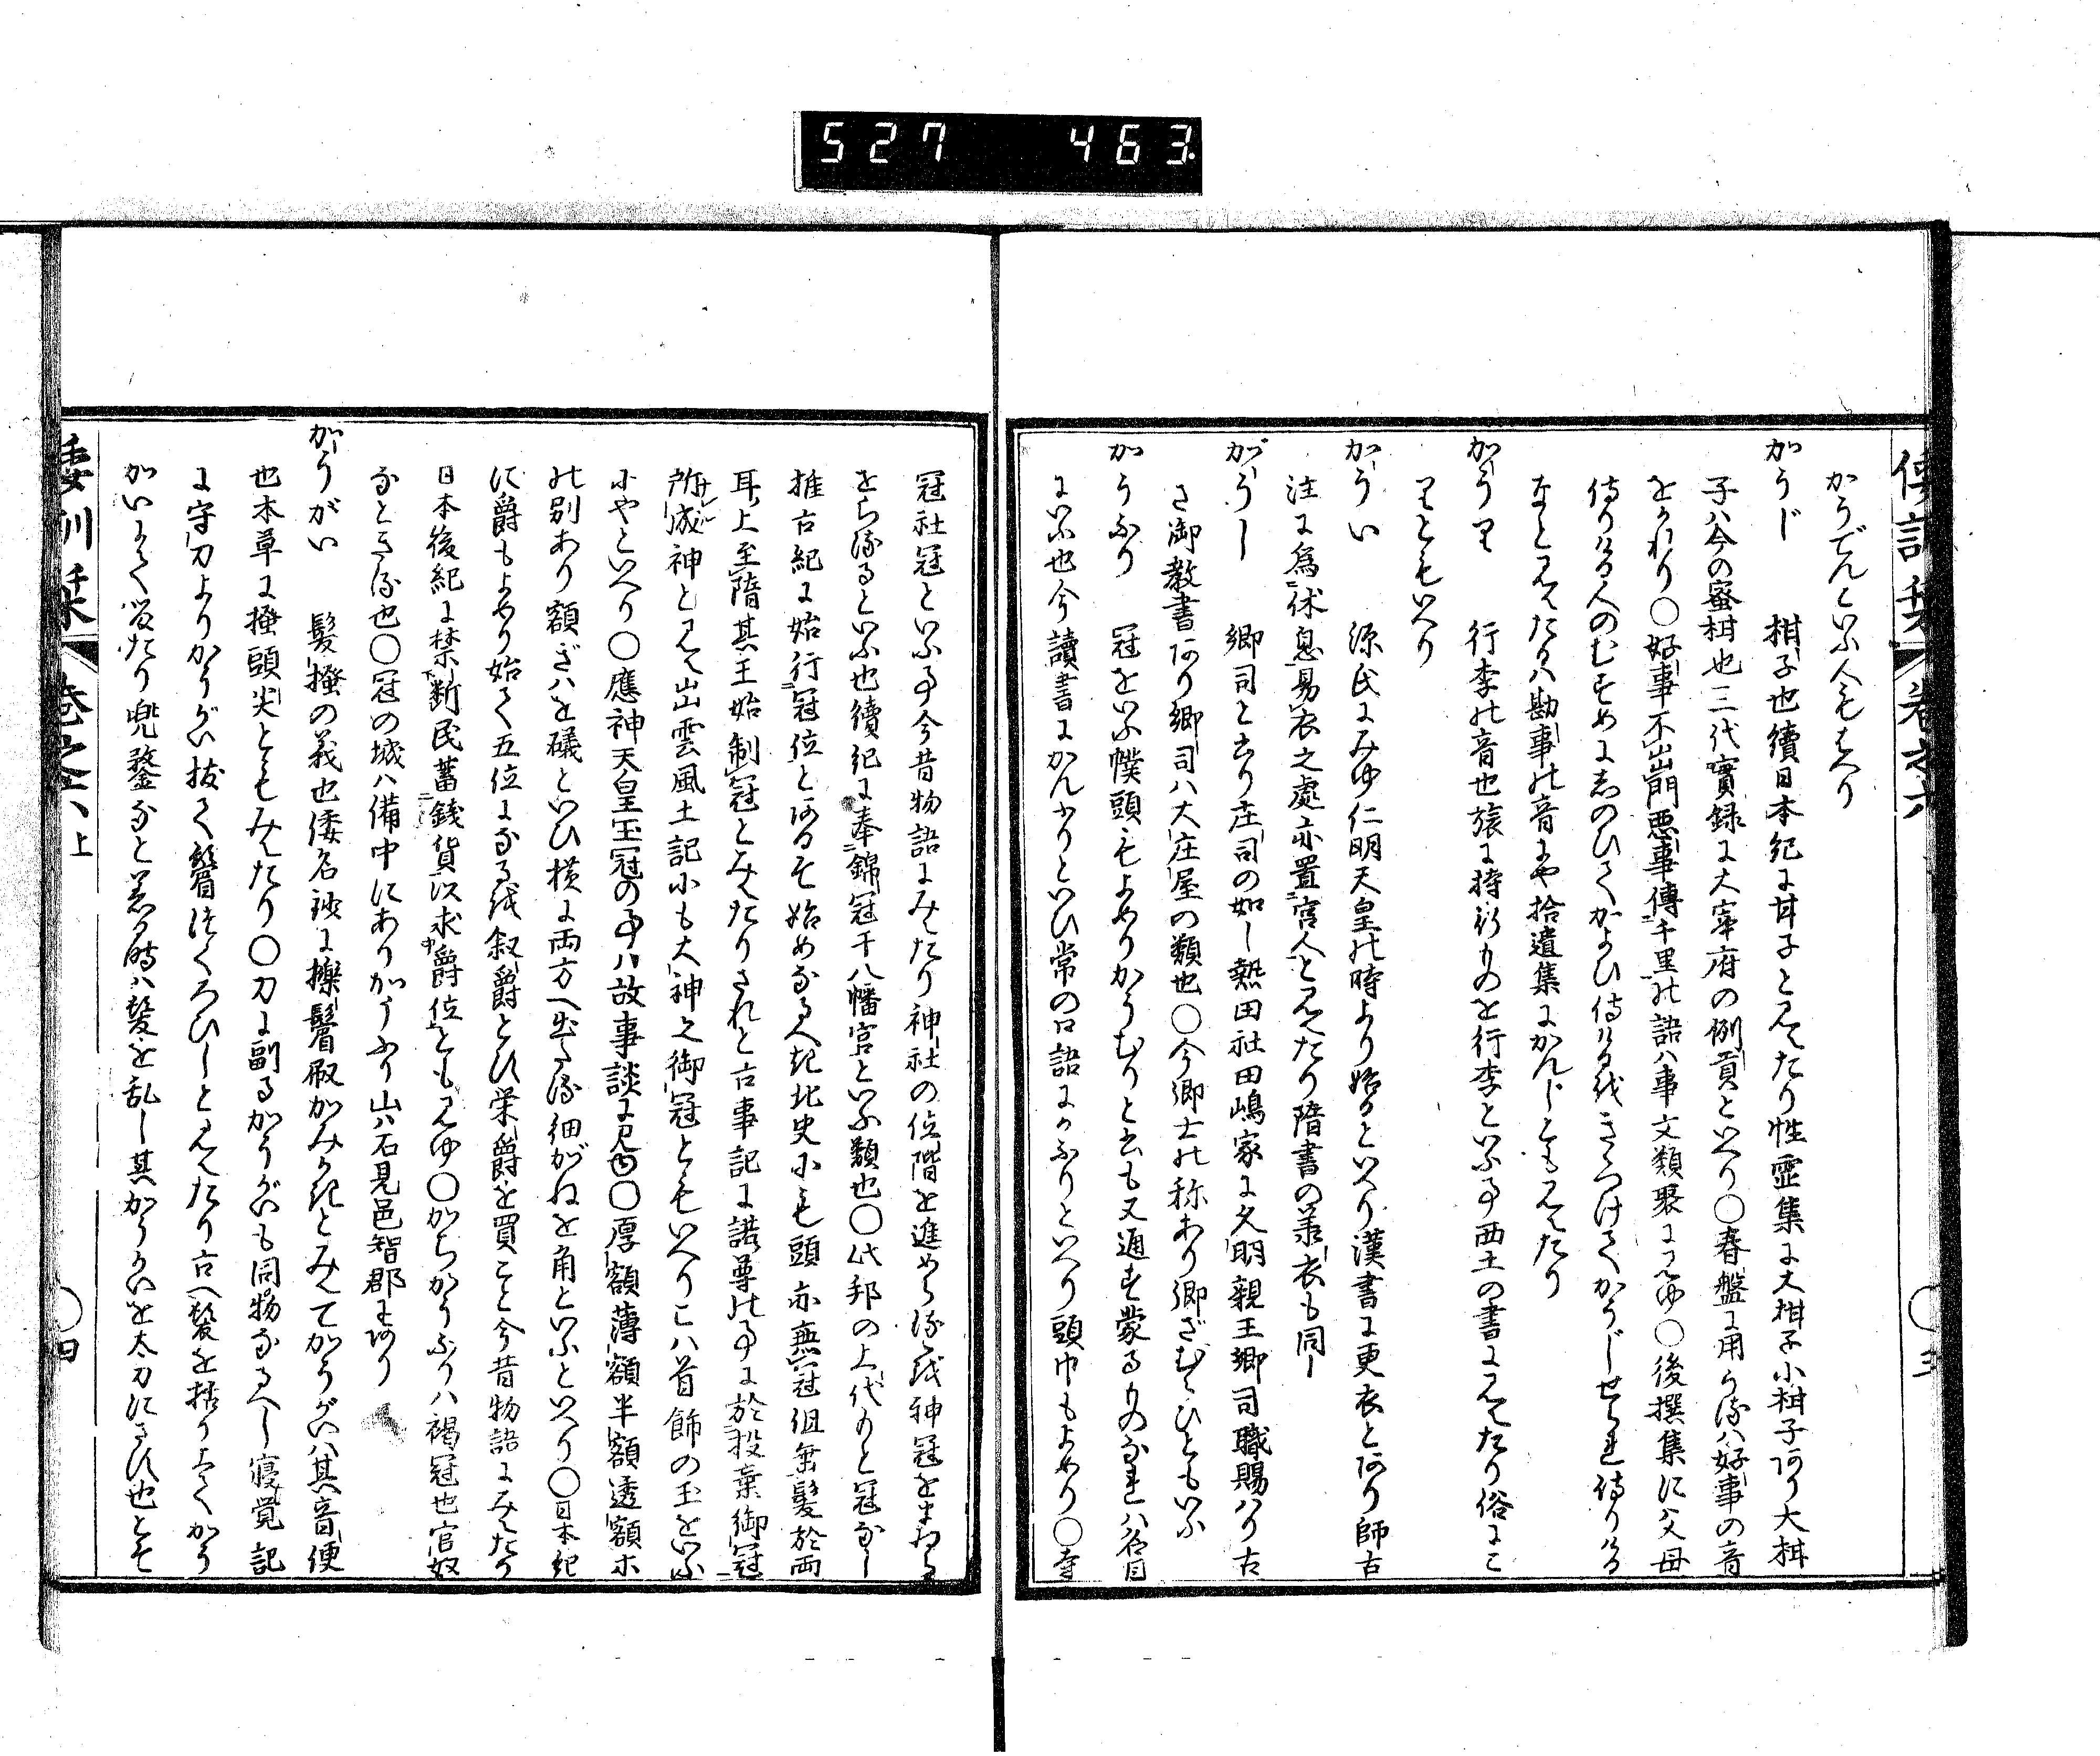 527 463.
倭訓栞 巻之六 ○三
かうでんといふ人もをり
かうじ 柑子也續日本紀に甘子と見えたり性霊集に大柑子小柑子あり大柑
子ハ今の蜜柑也三代實録に大宰府の例貢といへり○春盤に用うるハ好事の音
をとれり○好事不出門悪事傳千里の語ハ事文類聚にみゆ○後撰集に父母
侍りける人のむすめにしのひてかよひ侍けるをきゝつけてかうじせられ侍りける
なと見えたるハ勘事の音にや拾遺集にかんじとも見えたり
かうり 行李の音也旅に持行ものを行李といふ事西土の書に見えたり俗にこ
りともいへり
かうい 源氏にみゆ仁明天皇の時より始るといへり漢書に更衣とあり師古
注に為休息易衣之處亦置宮人と見えたり隋書の 衣も同し
がうし 郷司と云り庄司の如し熱田社田嶋家に久明親王郷司職賜ハり古
き御教書あり郷司ハ大庄屋の類也○今郷士の称あり郷ざむらひともいふ
かうふり 冠をいふ幞頭もよめりかうむりと云も又通す蒙るものなれハ名目
にいふ也今讀書にかんふりといひ常の口語にかふりといへり頭巾もよめり○寺
冠社冠といふ事今昔物語にみえたり神社の位階を進めらるを神冠をまゐる
をらるるといふ也續紀に奉錦冠于八幡宮といふ類也○此邦の上代ものと冠なし
推古紀に始行冠位とあるそ始めなるへき北史にも頭亦無冠但垂髪於両
耳上至隋其王始制冠とみえたりされと古事記に諾尊の事に於投棄御冠
所成神と見え出雲風土記にも大神之御冠ともいへりこハ首飾の玉をいふ
にやといへり○應神天皇玉冠の事ハ故事談に見ゆ○厚額薄額半額透額等
の別あり額ぎハを礒といひ横に両方へ出たる細がねを角といふといへり○日本紀
に爵もよめり始て五位になるを叙爵とひ栄爵を買こと今昔物語にみえたり
日本後紀に禁断民蓄銭貨以求爵位とも見ゆ○からかうふりハ褐冠也官奴
なときる也○冠の城ハ備中にありかうふり山ハ石見邑智郡にあり
かうがい 髪掻の義也倭名鈔に擽鬢取かみかきとみえてかうがいハ其音便
也本草に掻頭尖ともみえたり○刀に副るかうがいも同物なるへし寝覚記
に守刀よりかうがい抜て鬢つくろひしと見えたり古へ髪を括り上てかう
かいにてとめたり兜鍪なと着る時ハ髪を乱し其かうがいを太刀にさす也とそ
倭訓栞 巻之六上 ○四